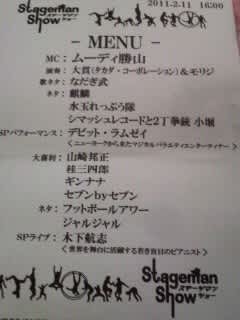 Stageman
Show
2011.2.11 16:00
- MENU -
MC: ムーディ勝山
演奏: 大貫(タカダ・コーポレーション)&モリジ
歌ネタ: なだぎ武
ネタ: 麒麟
水玉れっぷう隊
シマッシュレコードと2丁拳銃 小堀
SPパフォーマンス: デビット・ラムゼイ
<ニューヨークから来たマジカルバラエティエンターティナー>
大喜利: 山崎邦正
桂三四郎
ギンナナ
セブンbyセブン
ネタ: フットボールアワー
ジャルジャル
SPライブ: 木下航志
<世界を舞台に活躍する若き盲目のピアニスト>
Stageman
ステージマン
Show
ショー